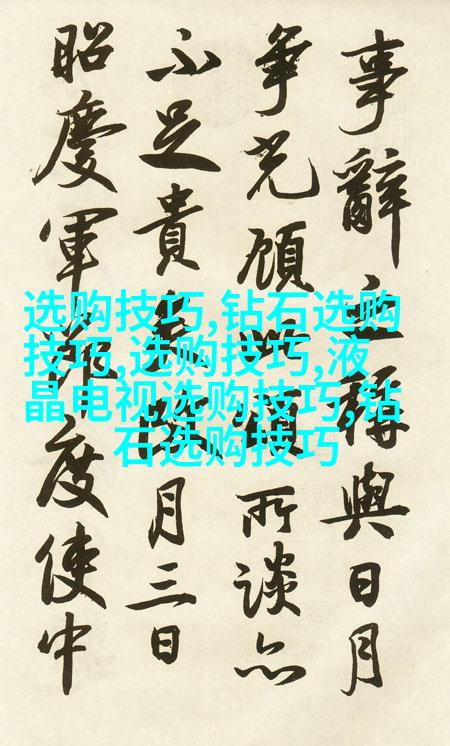 事辭之稱與日月
爭光顧此頌所談亦
不足貴矣除月三日
昭慶軍節度使中
选购技巧,钻石选购
技巧,选购技巧,液
晶电视选购技巧,钻
石选购技巧